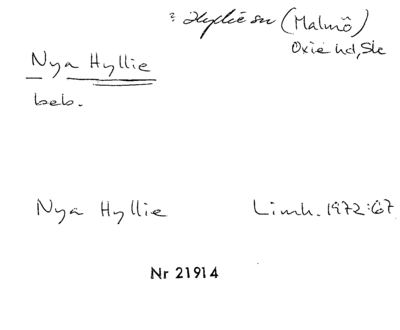 : Hyllie sn (Malmö)
Oxie hd, Sk
Nya Hyllie
beb.
Nya Hyllie Limh. 1972:67
Nr 21914